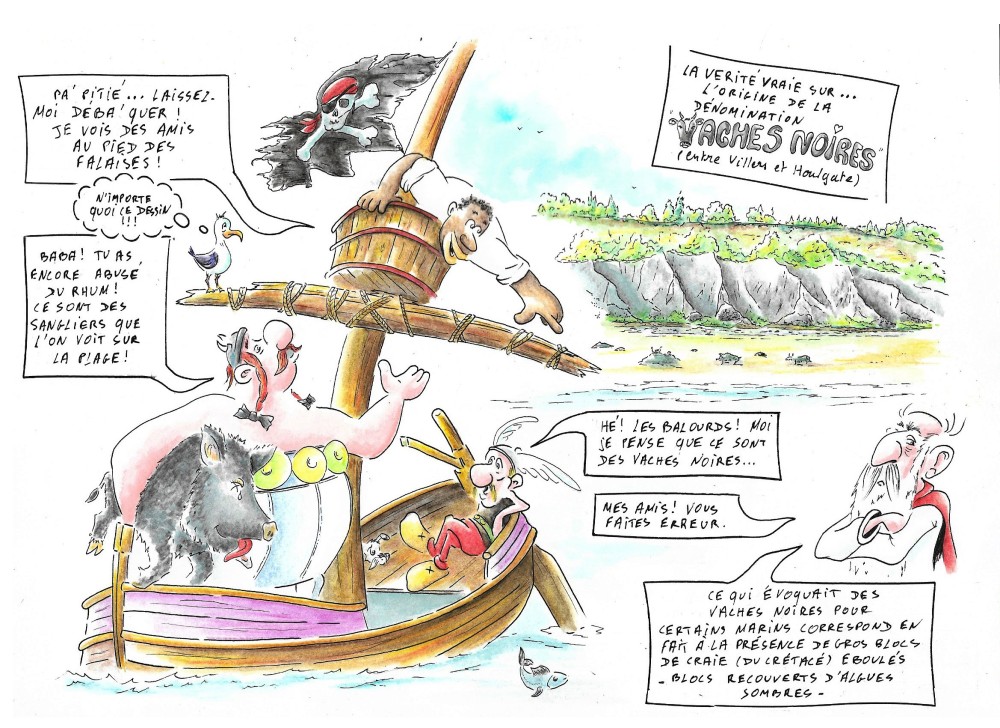 PA' PITIÉ... LAISSEZ-
MOI DEBA'QUER !
JE VOIS DES AMIS
AU PIED DES
FALAISES !
N'IMPORTE
QUOI CE DESSIN
!!!
BABA! TU AS
ENCORE ABUSE
DU RHUM!
CE SONT DES
SANGLIERS QUE
L'ON VOIT SUR
LA PLAGE!
LA VERITÉ VRAIE SUR...
L'ORIGINE DE LA
DENOMINATION
"VACHES NOIRES"
(entre Villers et Houlgate)
HÉ! LES BALOURDS! MOI
JE PENSE QUE CE SONT
DES VACHES NOIRES...
MES AMIS! VOUS
FAITES ERREUR.
CE QUI ÉVOQUAIT DES
VACHES NOIRES POUR
CERTAINS MARINS CORRESPOND EN
FAIT A LA PRÉSENCE DE GROS BLOCS
DE CRAIE (DU CRÉTACÉ) ÉBOULÉS
- BLOCS RECOUVERTS D'ALGUES
SOMBRES -